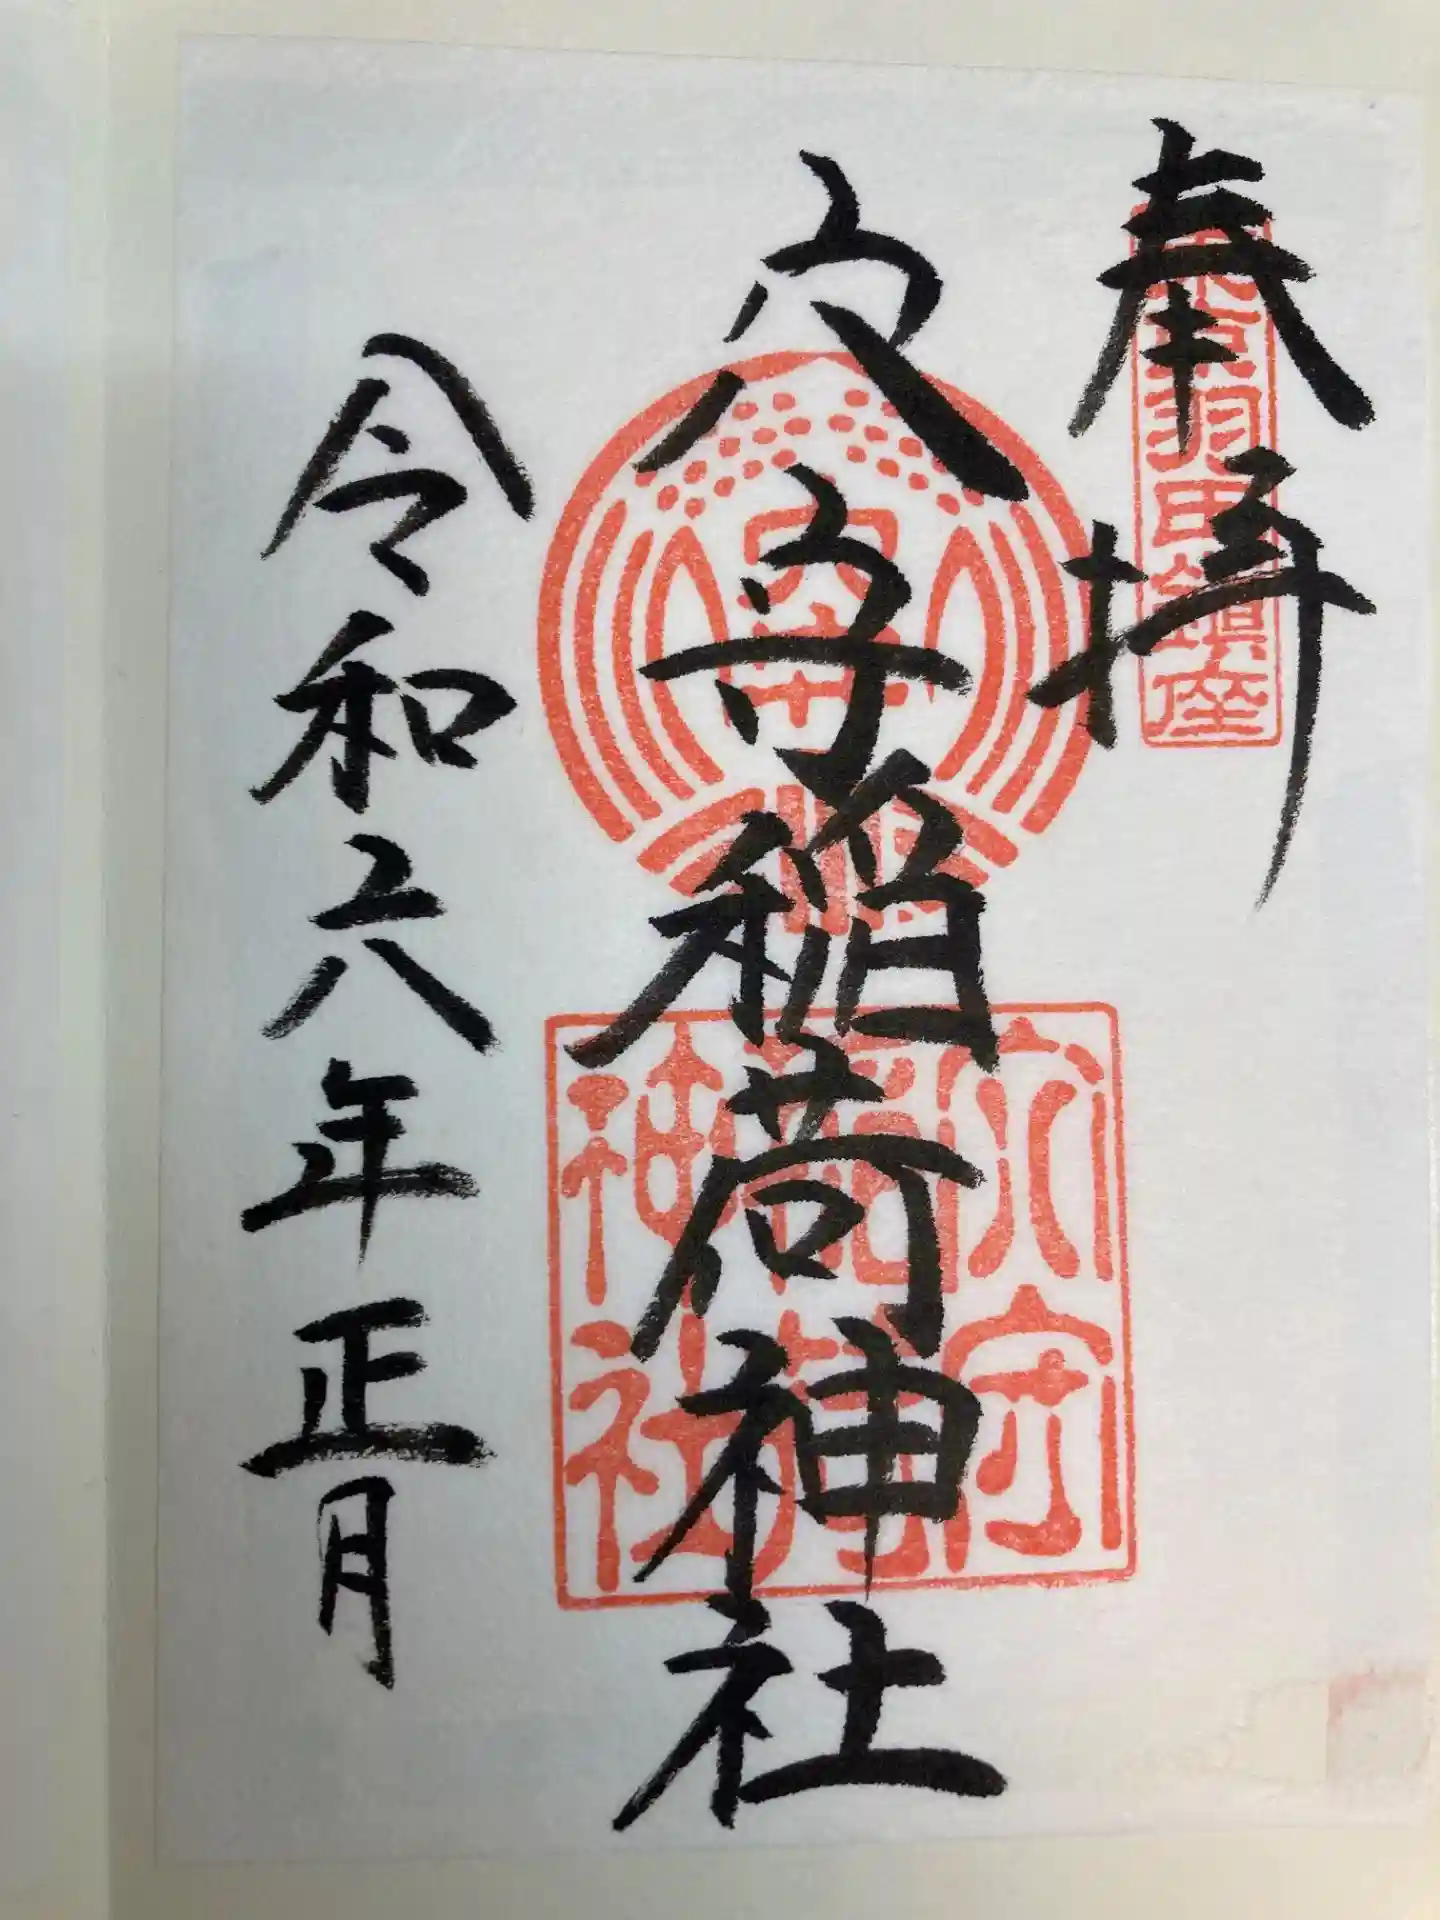 奉拝
東京羽田鎮座
穴守稲荷神社
穴守
稲荷
神社
令和六年正月